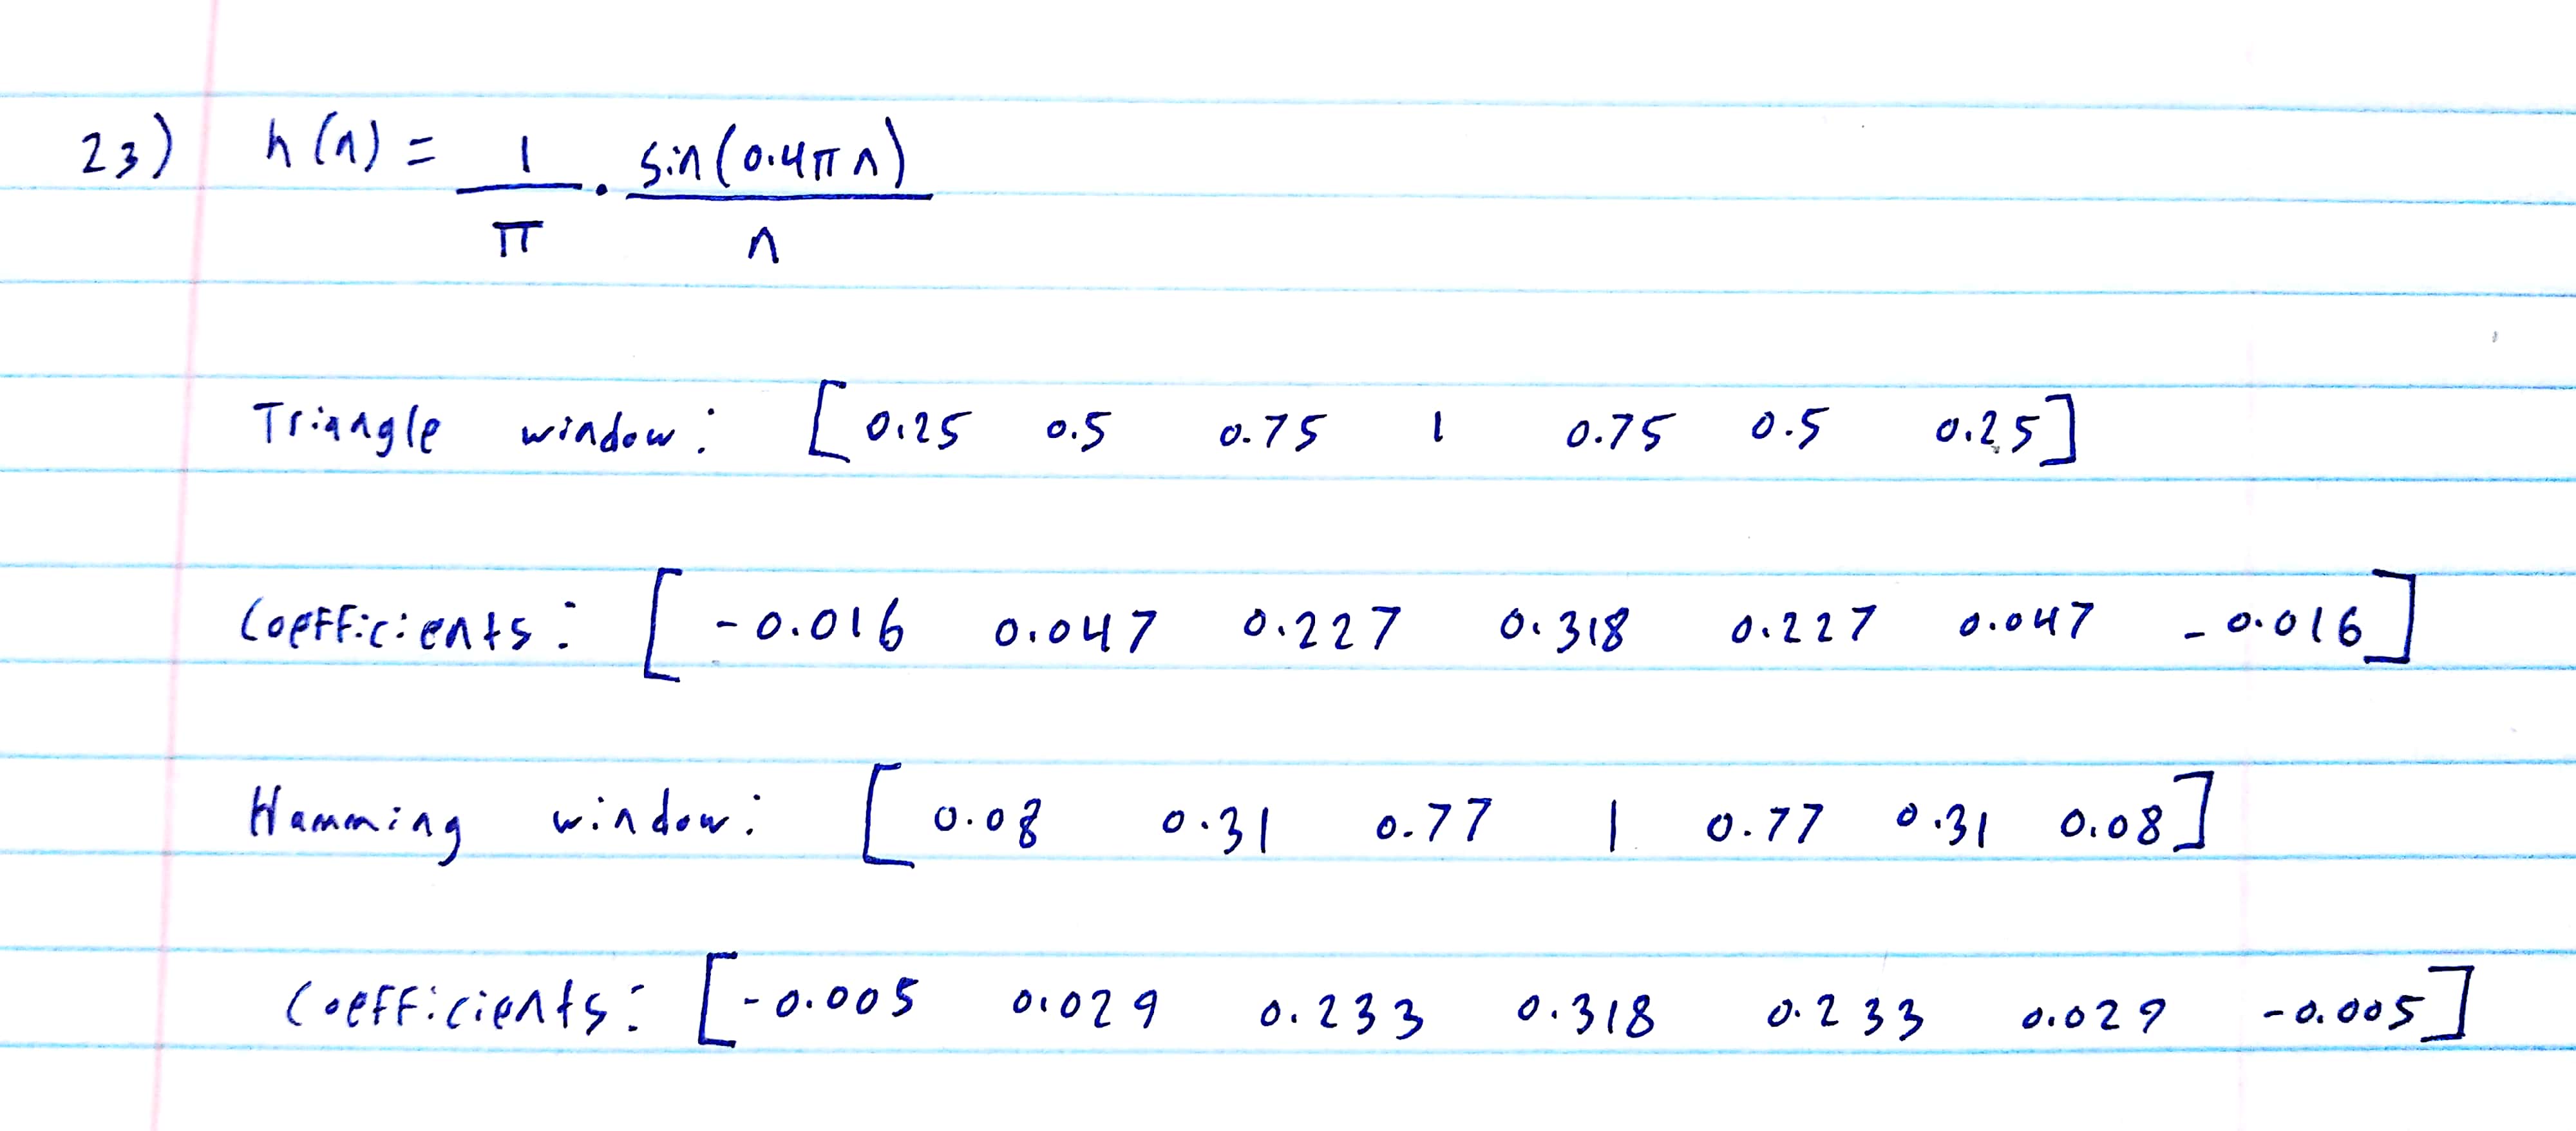 23) h(n) = 1/π · sin(0.4πn)/n
Triangle window: [0.25 0.5 0.75 1 0.75 0.5 0.25]
Coefficients: [-0.016 0.047 0.227 0.318 0.227 0.047 -0.016]
Hamming window: [0.08 0.31 0.77 1 0.77 0.31 0.08]
Coefficients: [-0.005 0.029 0.233 0.318 0.233 0.029 -0.005]